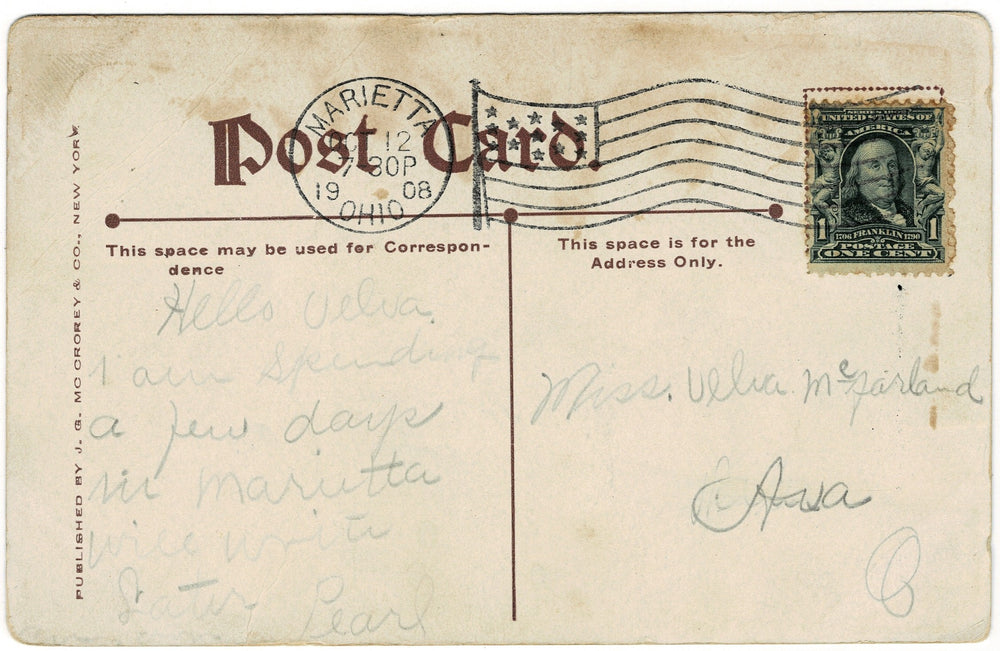 Post Card.
MARIETTA
OCT 12
7-30P
19 08
OHIO
SERIES 1902
UNITED STATES OF
AMERICA
1 1706 FRANKLIN 1790 1
POSTAGE
ONE CENT
This space may be used for Correspon-
dence
This space is for the
Address Only.
PUBLISHED BY J. G. MC CROREY & CO., NEW YORK
Hello Velva.
I am spending
a few days
in Marietta
will write
Later Pearl
Miss. Velva McFarland
Ava
O